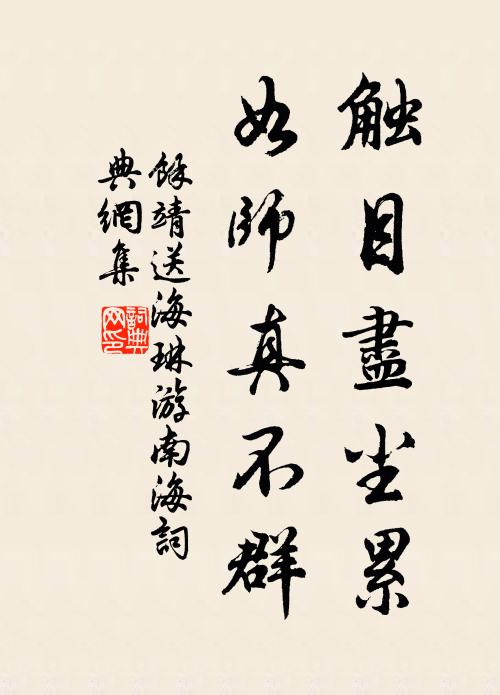 触目盡尘累
如師真不群
餘靖送海琳游南海詞
典網集
詞典网印